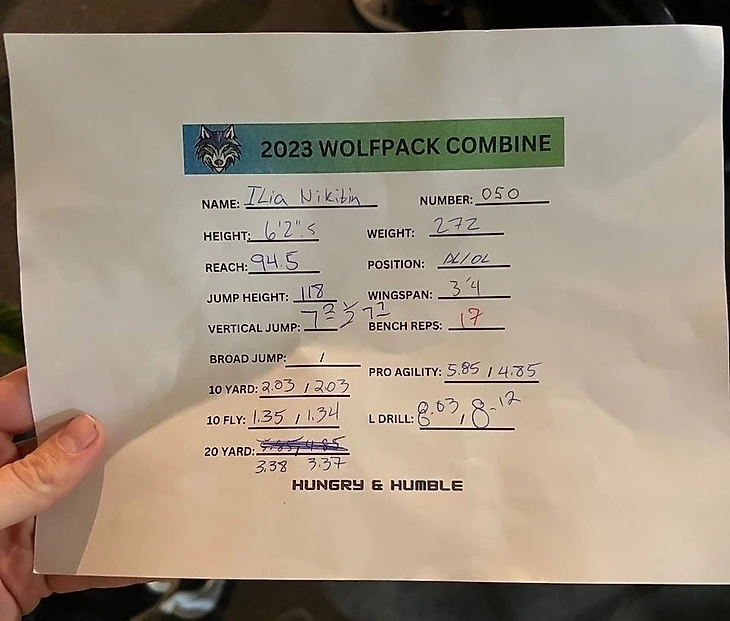 2023 WOLFPACK COMBINE
NAME: ILia Nikitin NUMBER: 050
HEIGHT: 6'2".5 WEIGHT: 272
REACH: 94.5 POSITION: DL/OL
JUMP HEIGHT: 118 WINGSPAN: 3'4
VERTICAL JUMP: BENCH REPS: 17
BROAD JUMP: /
PRO AGILITY: 5.85 / 4.85
10 YARD: 2.03 / 2.03
10 FLY: 1.35 / 1.34 L DRILL: 8.03, 8.12
20 YARD:
3.38 3.37
HUNGRY & HUMBLE